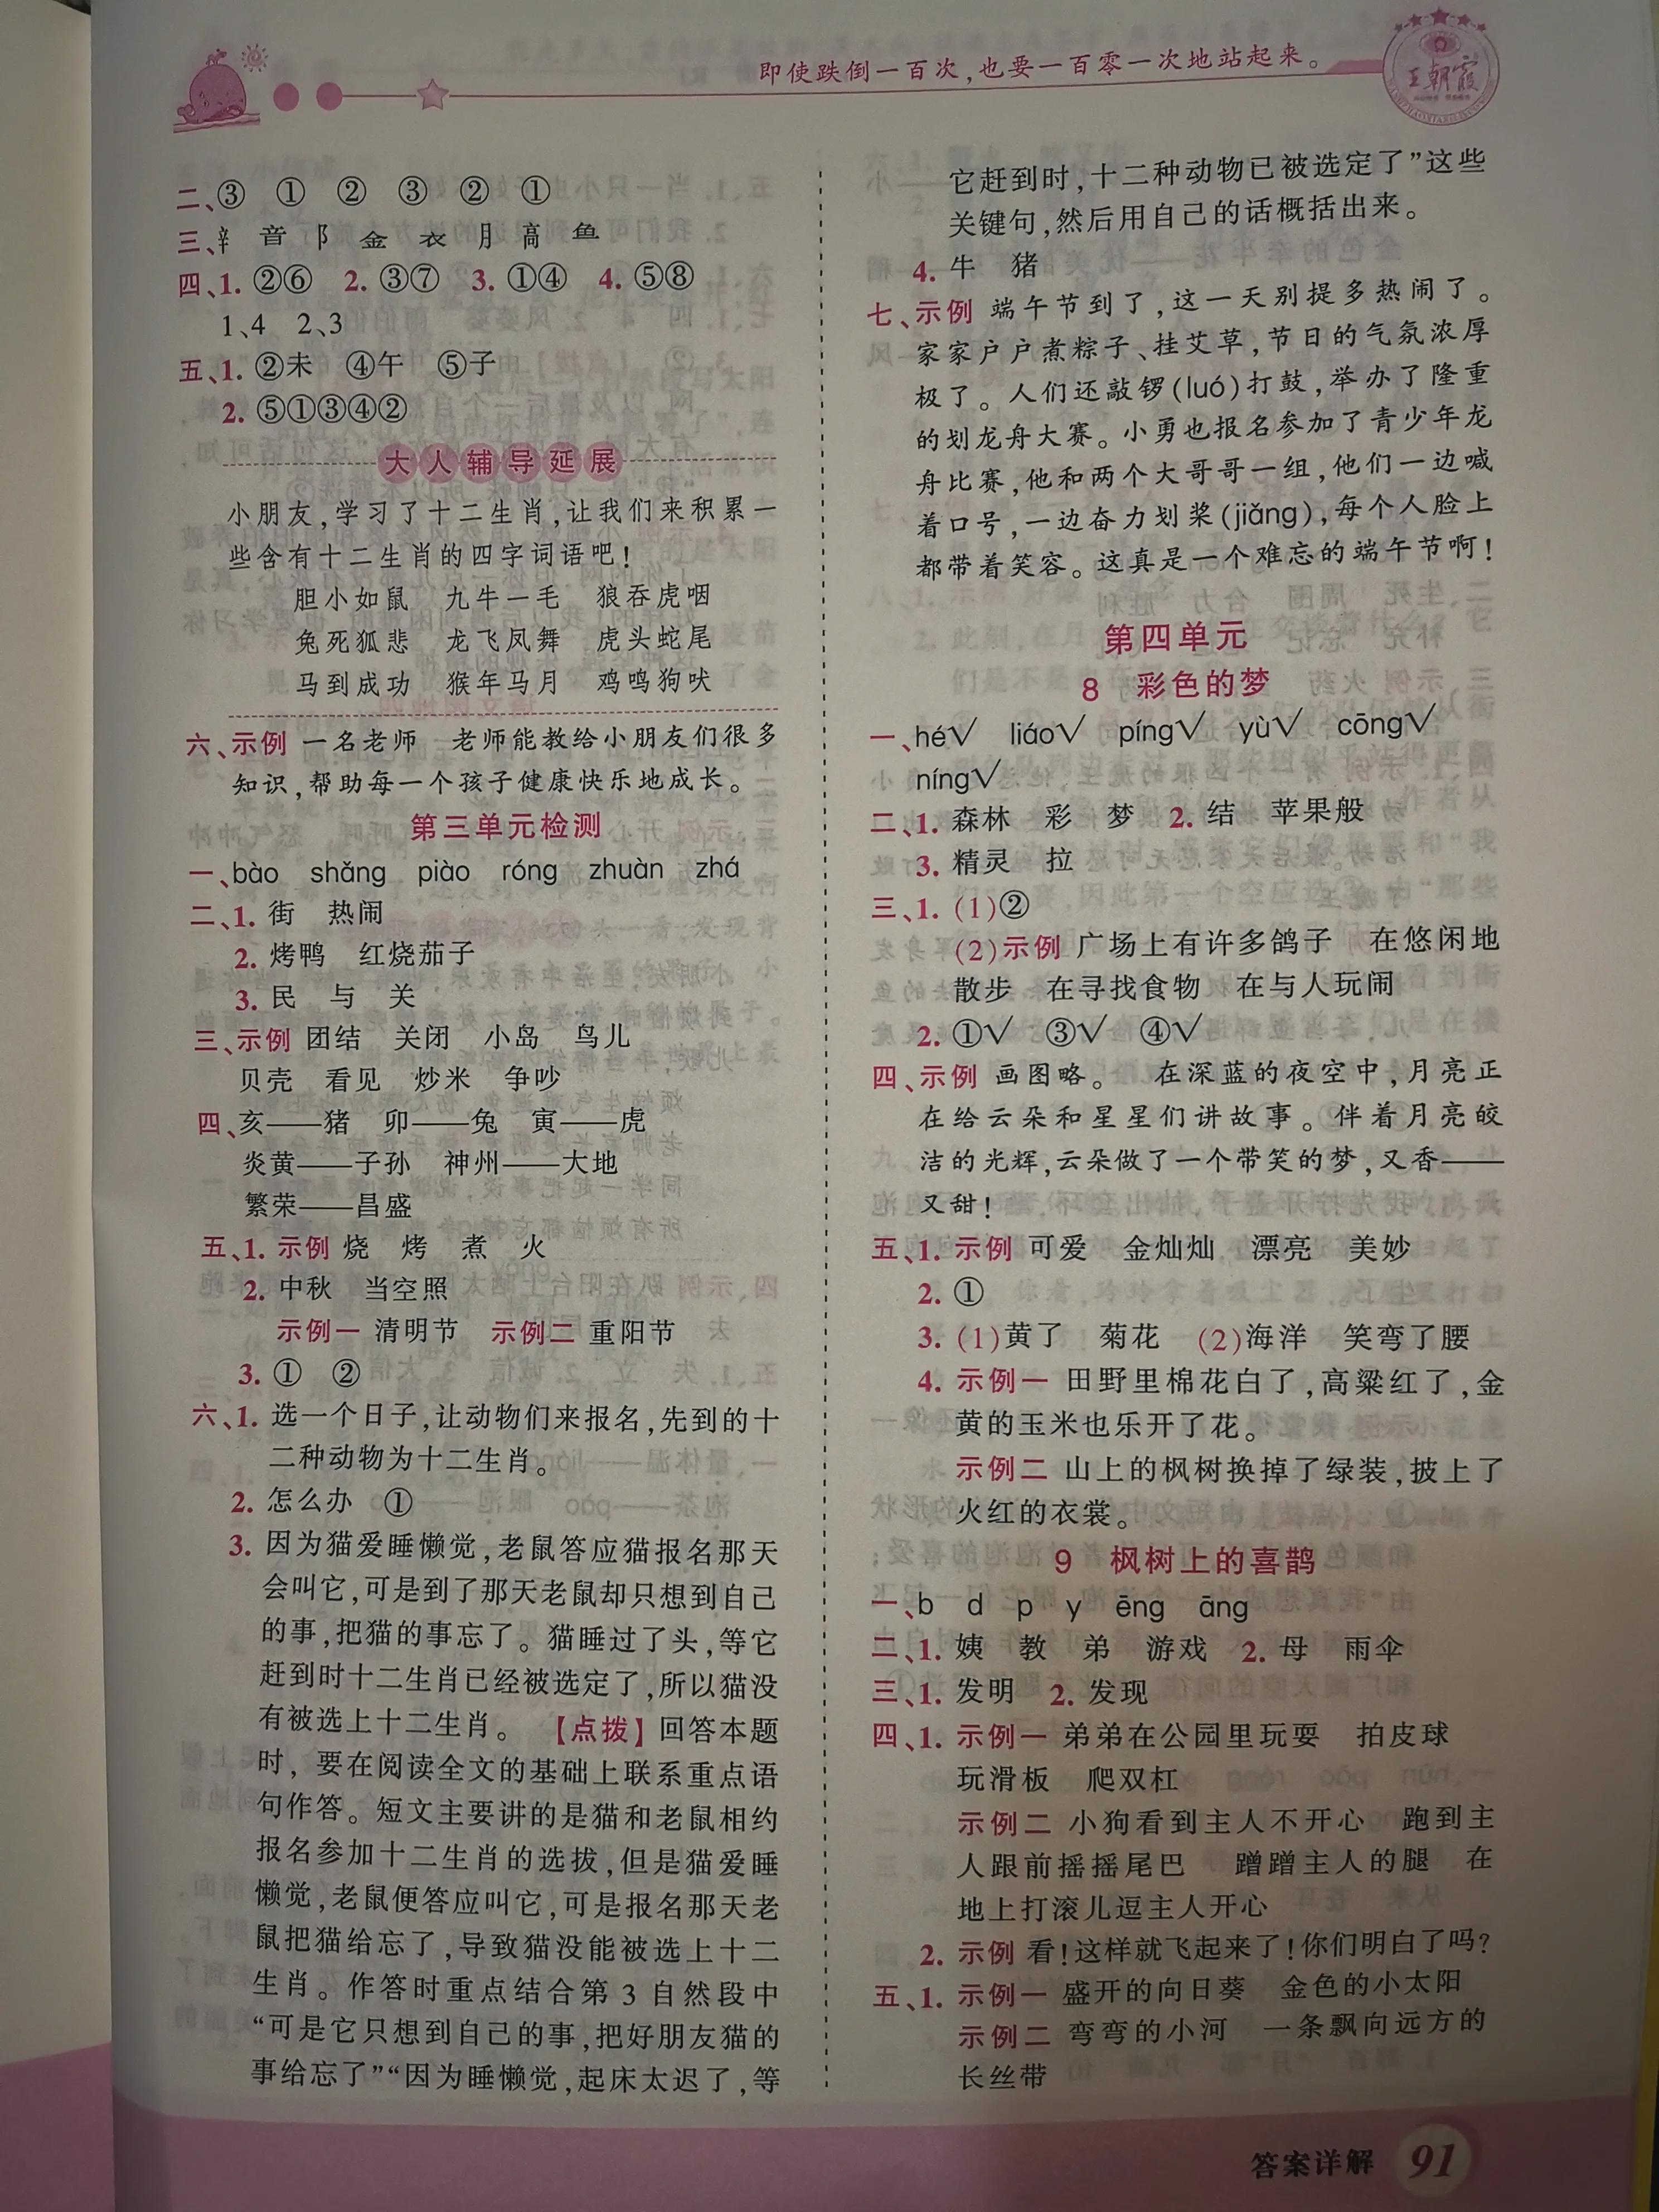 即使跌倒一百次,也要一百零一次地站起来。
王朝霞
二、③ ① ② ③ ② ①
三、 音 阝 金 衣 月 高 鱼
四、1. ②⑥ 2. ③⑦ 3. ①④ 4. ⑤⑧
1、4 2、3
五、1. ②未 ④午 ⑤子
2. ⑤①③④②
大人辅导延展
小朋友,学习了十二生肖,让我们来积累一
些含有十二生肖的四字词语吧!
胆小如鼠 九牛一毛 狼吞虎咽
兔死狐悲 龙飞凤舞 虎头蛇尾
马到成功 猴年马月 鸡鸣狗吠
六、示例 一名老师 老师能教给小朋友们很多
知识,帮助每一个孩子健康快乐地成长。
第三单元检测
一、bào shǎng piào róng zhuàn zhá
二、1. 街 热闹
2. 烤鸭 红烧茄子
3. 民 与 关
三、示例 团结 关闭 小岛 鸟儿
贝壳 看见 炒米 争吵
四、亥——猪 卯——兔 寅——虎
炎黄——子孙 神州——大地
繁荣——昌盛
五、1. 示例 烧 烤 煮 火
2. 中秋 当空照
示例一 清明节 示例二 重阳节
3. ① ②
六、1. 选一个日子,让动物们来报名,先到的十
二种动物为十二生肖。
2. 怎么办 ①
3. 因为猫爱睡懒觉,老鼠答应猫报名那天
会叫它,可是到了那天老鼠却只想到自己
的事,把猫的事忘了。猫睡过了头,等它
赶到时十二生肖已经被选定了,所以猫没
有被选上十二生肖。 【点拨】回答本题
时,要在阅读全文的基础上联系重点语
句作答。短文主要讲的是猫和老鼠相约
报名参加十二生肖的选拔,但是猫爱睡
懒觉,老鼠便答应叫它,可是报名那天老
鼠把猫给忘了,导致猫没能被选上十二
生肖。作答时重点结合第3自然段中
“可是它只想到自己的事,把好朋友猫的
事给忘了”“因为睡懒觉,起床太迟了,等
它赶到时,十二种动物已被选定了”这些
关键句,然后用自己的话概括出来。
4. 牛 猪
七、示例 端午节到了,这一天别提多热闹了。
家家户户煮粽子、挂艾草,节日的气氛浓厚
极了。人们还敲锣(luó)打鼓,举办了隆重
的划龙舟大赛。小勇也报名参加了青少年龙
舟比赛,他和两个大哥哥一组,他们一边喊
着口号,一边奋力划桨(jiǎng),每个人脸上
都带着笑容。这真是一个难忘的端午节啊!
第四单元
8 彩色的梦
一、hé√ liáo√ píng√ yù√ cōng√
níng√
二、1. 森林 彩 梦 2. 结 苹果般
3. 精灵 拉
三、1. (1)②
(2)示例 广场上有许多鸽子 在悠闲地
散步 在寻找食物 在与人玩闹
2. ①√ ③√ ④√
四、示例 画图略。 在深蓝的夜空中,月亮正
在给云朵和星星们讲故事。伴着月亮皎
洁的光辉,云朵做了一个带笑的梦,又香——
又甜!
五、1. 示例 可爱 金灿灿 漂亮 美妙
2. ①
3. (1)黄了 菊花 (2)海洋 笑弯了腰
4. 示例一 田野里棉花白了,高粱红了,金
黄的玉米也乐开了花。
示例二 山上的枫树换掉了绿装,披上了
火红的衣裳。
9 枫树上的喜鹊
一、b d p y ēng āng
二、1. 姨 教 弟 游戏 2. 母 雨伞
三、1. 发明 2. 发现
四、1. 示例一 弟弟在公园里玩耍 拍皮球
玩滑板 爬双杠
示例二 小狗看到主人不开心 跑到主
人跟前摇摇尾巴 蹭蹭主人的腿 在
地上打滚儿逗主人开心
2. 示例 看!这样就飞起来了!你们明白了吗?
五、1. 示例一 盛开的向日葵 金色的小太阳
示例二 弯弯的小河 一条飘向远方的
长丝带
答案详解 91